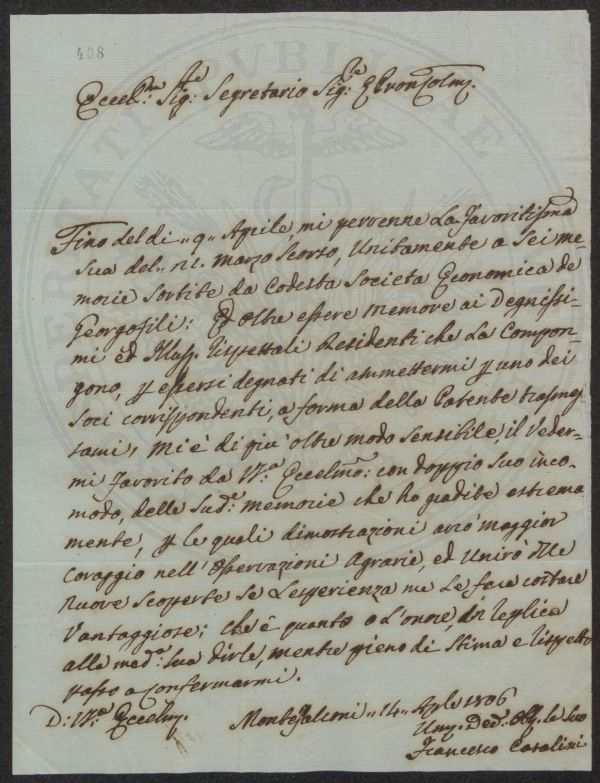 408
Eccel.mo Sig.re Segretario Sig.re e Pron Col.mo
Fino del di "9" Aprile, mi pervenne La Favoritissima
Sua del "21" Marzo Scorso, Unitamente a Sei me-
morie Sortite da Codesta Societa Economica de
Georgofili; Ed Oltre essere memore ai Degnissi-
mi ed Illussi Rispettali Residenti che La Compon-
gono, p essersi degnati di ammettermi p uno dei
Soci corrispondenti, a forma della Patente trasmes-
sami, mi è di più oltre modo Sensibile, il Veder-
mi favorito da V.a Eccelma: con doppio Suo inco-
modo, delle Sud.e memorie che ho gradite estrema-
mente, p le quali dimostrazioni avrò maggior
Coraggio nell'Osservazioni Agrarie, ed Unirò Alle
Nuove Scoperte Se L'esperienza me Le farà costare
Vantaggiose; che è quanto o L'onore, in replica
alla med.a Sua dirle, mentre pieno di Stima e rispetto
passo a Confermarmi.
D: V.a Eccelm.
Montefalconi "14" Aple 1806
Um.o Dev.o Obb.
Francesco Casalini